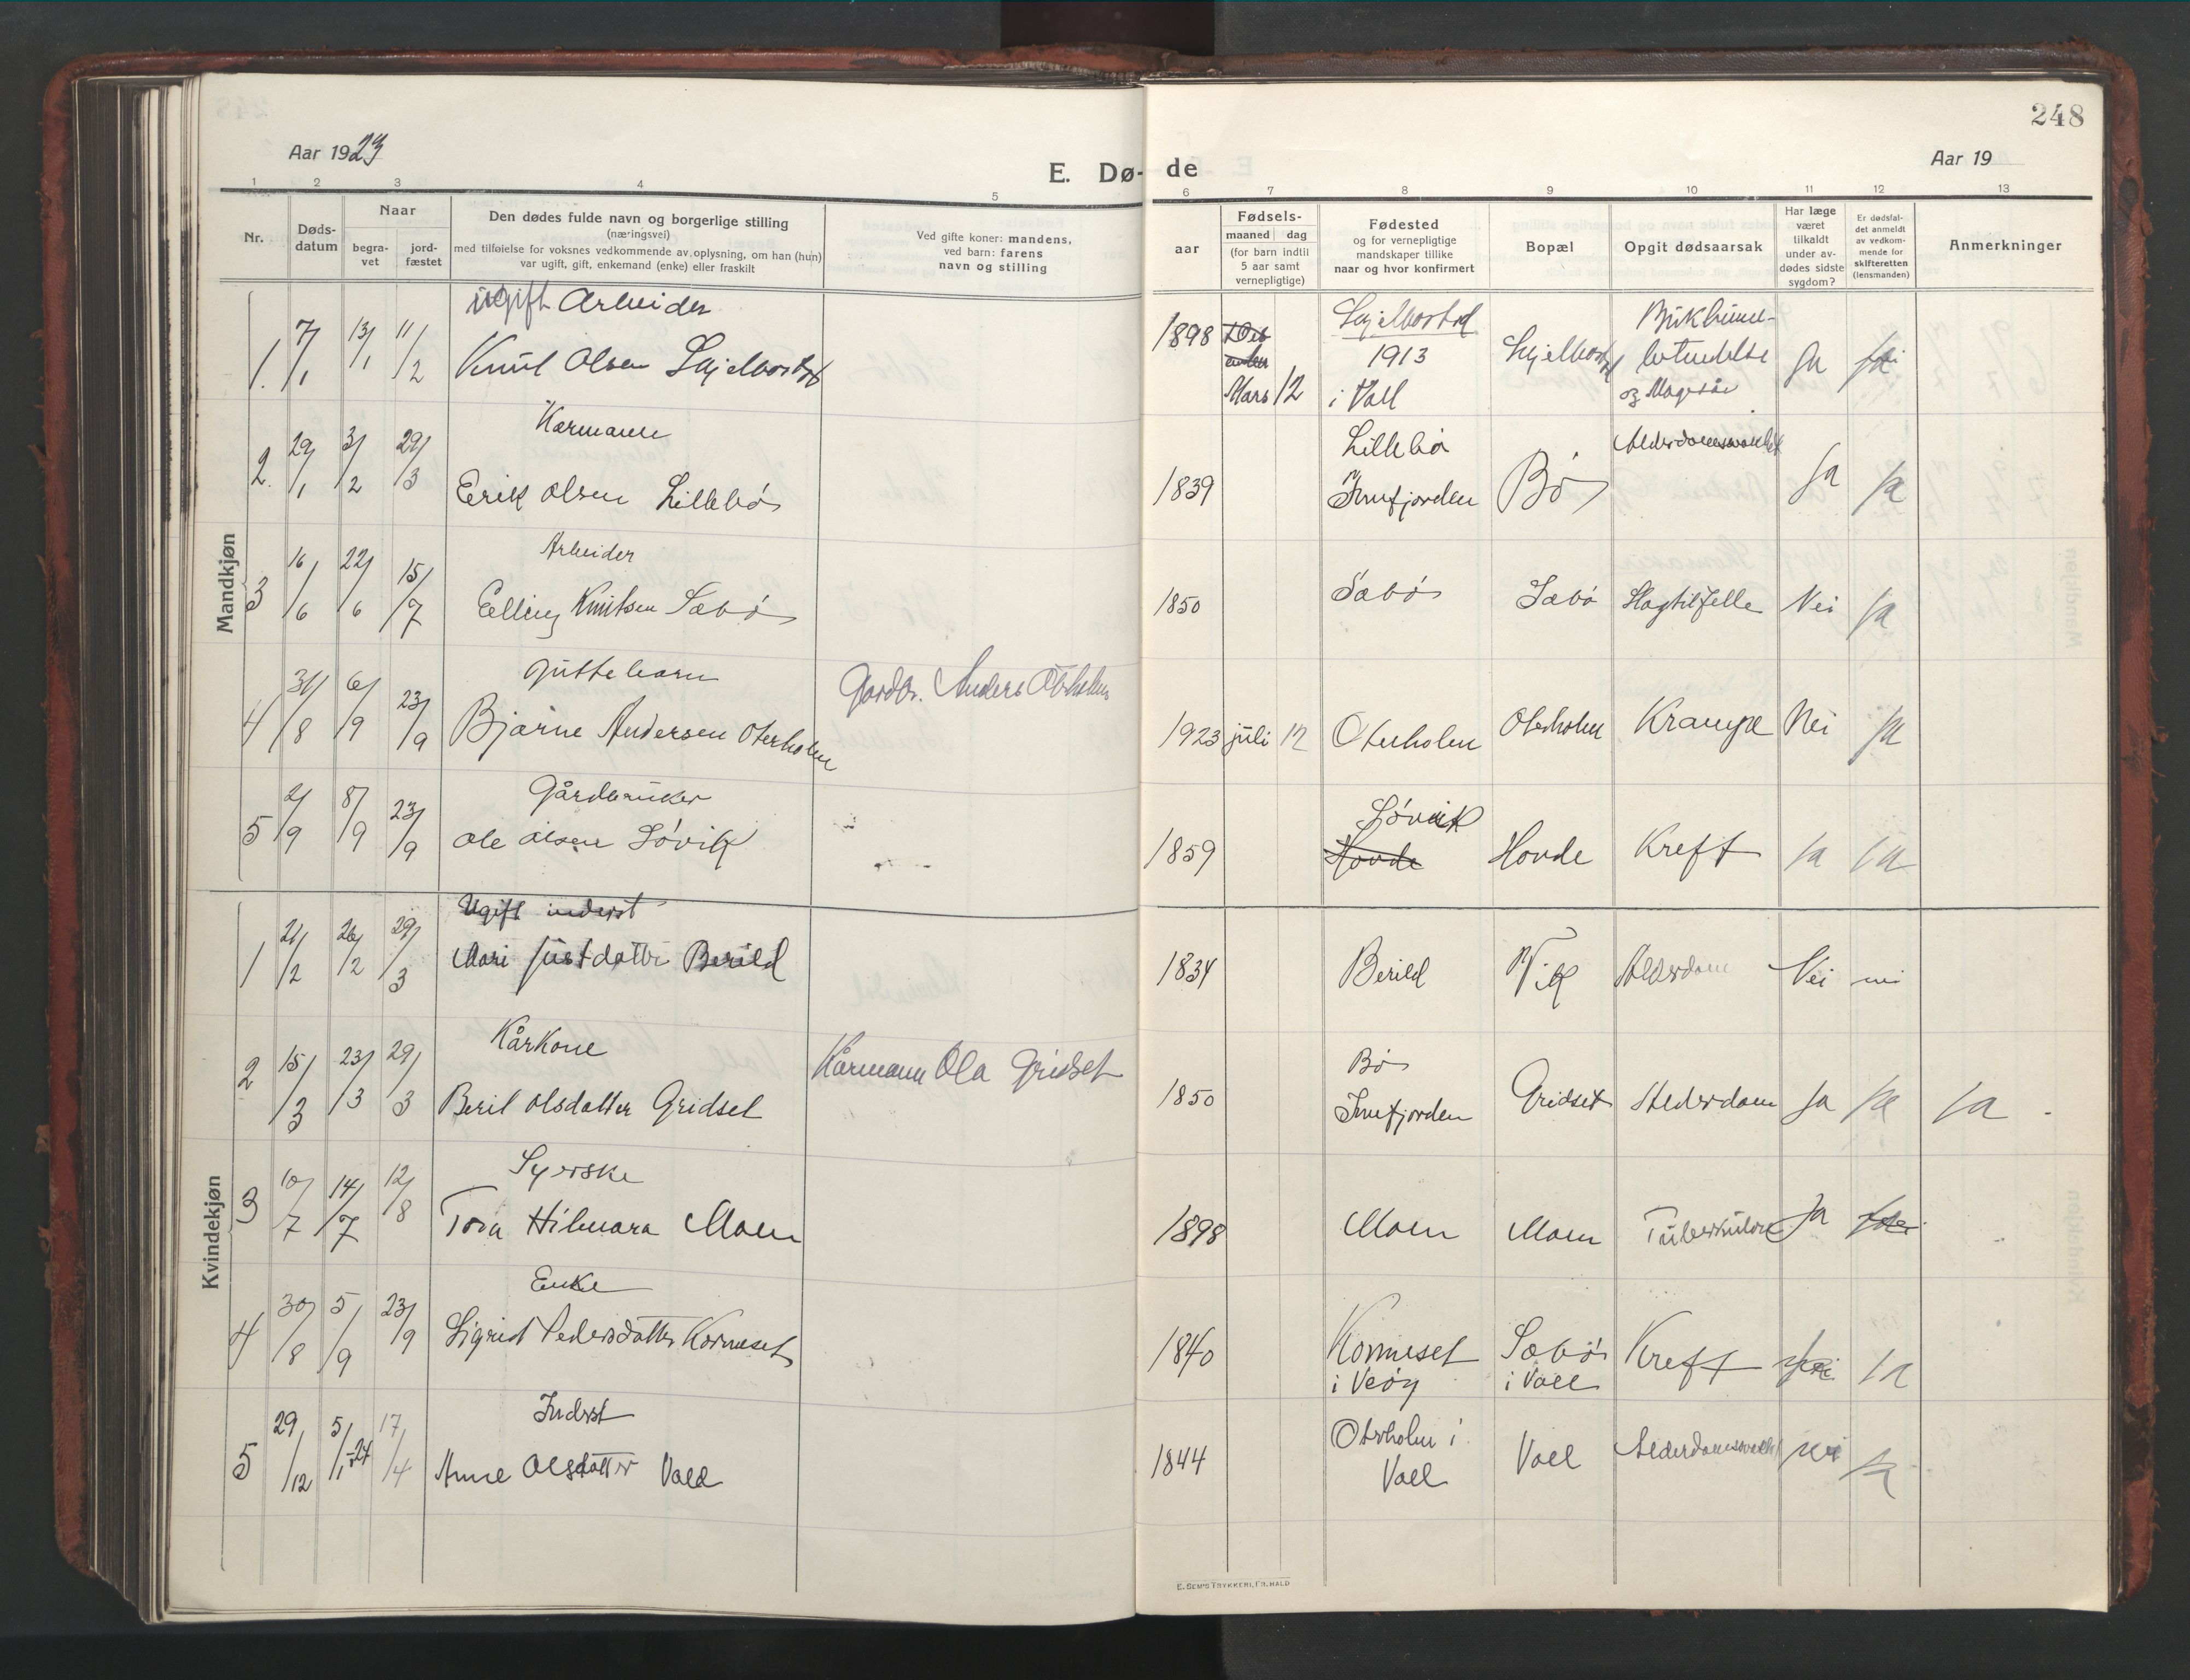 248
Aar 1923
E. Dø-
de
Aar 19
1 2 3 4 5
6 7 8 9 10 11 12 13
Nr.
Døds-
datum
Naar
begra-
vet
jord-
fæstet
Den dødes fulde navn og borgerlige stilling
(næringsvei)
med tilføielse for voksnes vedkommende av oplysning, om han (hun)
var ugift, gift, enkemand (enke) eller fraskilt
Ved gifte koner: mandens,
ved barn: farens
navn og stilling
aar
Fødsels-
maaned dag
(for barn indtil
5 aar samt
vernepligtige)
Fødested
og for vernepligtige
mandskaper tillike
naar og hvor konfirmert
Bopæl
Opgit dødsaarsak
Har læge
været
tilkaldt
under av-
dødes sidste
sygdom?
Er dødsfal-
det anmeldt
av vedkom-
mende for
skifteretten
(lensmanden)
Anmerkninger
Mandkjøn
ugift Arbeider
1. 7/1 13/1 11/2 Knut Olsen Skjelbostad
1898 Mars 12
Skjelbostad
1913
i Voll
Skjelbostad
Bukhinne-
betendelse
og Magesår
Ja
Kårmann
2. 29/1 3/2 29/3 Erik Olsen Lillebø
1839
Lillebø
Innfjorden
Bø
Alderdomssvakhet
Ja Ja
Arbeider
3 16/6 22/6 15/7 Elling Knutsen Sæbø
1850 Sæbø Sæbø Slagtilfelle Nei Ja
Guttebarn
4 31/8 6/9 23/9 Bjarne Andersen Oterholm
Gardbr. Anders Oterholm
1923 juli 12 Oterholm Oterholm Krampe Nei Ja
Gårdbruker
5 2/9 8/9 23/9 Ole Olsen Løvik
1859
Løvik
Hovde
Hovde Kreft Ja Ja
Kvindekjøn
Ugift inderst
1 21/2 26/2 29/3 Mari Justdatter Berild
1834 Berild Vik Alderdom Nei nei
Kårkone
2 15/3 23/3 29/3 Beril Olsdatter Gridset
Kårmann Ola Gridset
1850
Bø
Innfjorden
Gridset Alderdom Ja Ja Ja
Syerske
3 10/7 14/7 12/8 Tora Hilmara Moen
1898 Moen Moen Tuberkulose Ja
Enke
4 30/8 5/9 23/9 Sigrid Pedersdatter Kormeset
1840
Kormeset
i Veøy
Sæbø
i Voll
Kreft Ja
Inderst
5 29/12 5/1-24 17/4 Anne Olsdatter Vold
1844
Oterholm i
Voll
Voll Alderdomssvakh nei Ja
E. SEM'S TRYKKERI, FR.HALD